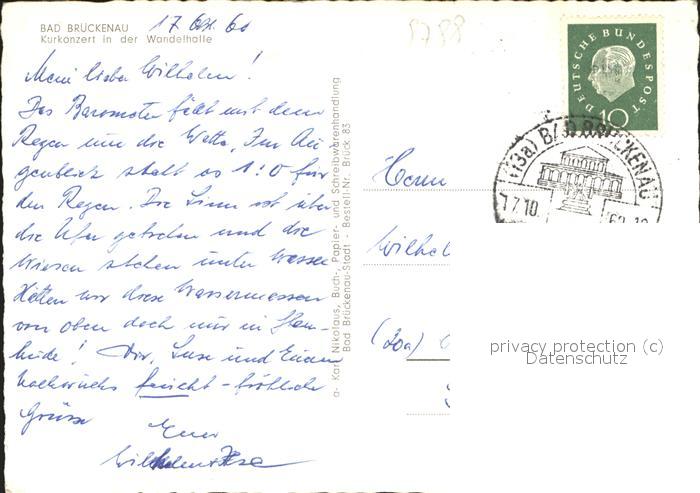 BAD BRÜCKENAU
Kurkonzert in der Wandelhalle
17 Okt. 60
Mein lieber Wilhelm!
Das Barometer fällt mit dem
Regen um die Wette. Im Au-
genblick steht es 1:0 für
den Regen. Die Sinn ist über
die Ufer getreten und die
Wiesen stehen unter Wasser
Hätten wir diese Wassermassen
von oben doch nur in
Dir, Luise und
feucht-fröhliche
Grüsse
Euer
Wilhelm
a- Karl Nikolaus, Buch-, Papier- und Schreibwarenhandlung
Bad Brückenau-Stadt - Bestell-Nr. Brück. 83
5788
DEUTSCHE BUNDESPOST
10
(13a) BAD BRÜCKENAU
17.10.
Herrn
Wilhel
(20a)
privacy protection (c)
Datenschutz